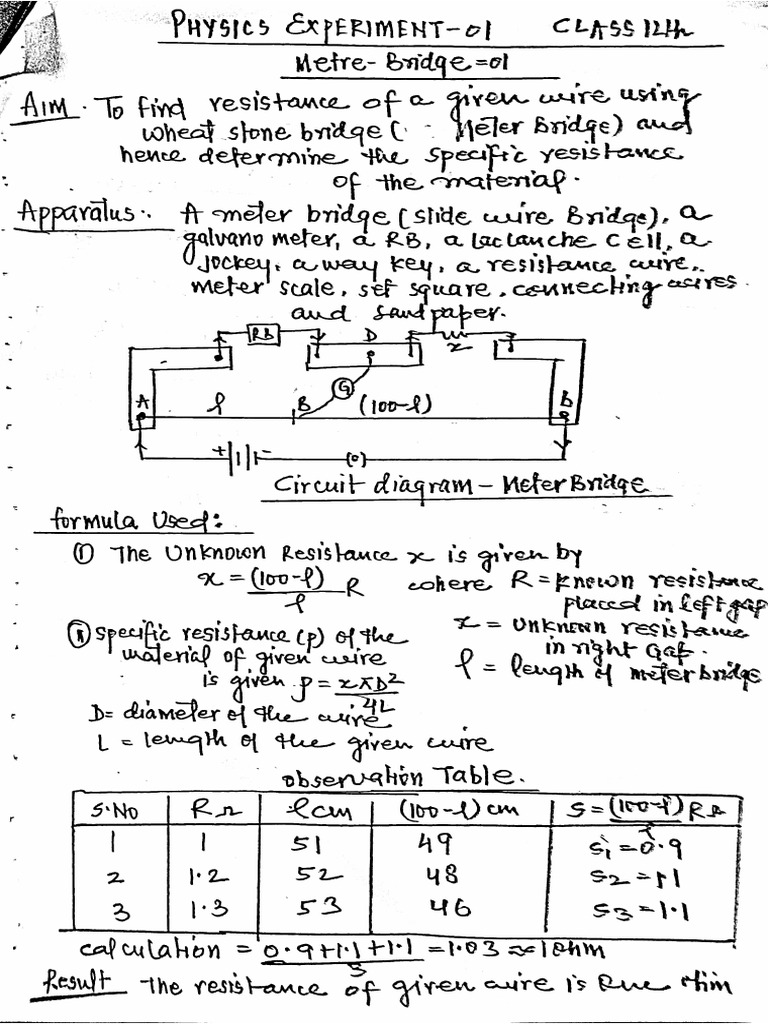 PHYSICS EXPERIMENT-01 CLASS 12th
Metre-Bridge=01
AIM. To find resistance of a given wire using
wheat stone bridge ( Meter Bridge) and
hence determine the specific resistance
of the material.
Apparatus:. A meter bridge (slide wire Bridge), a
galvano meter, a RB, a laclanche cell, a
Jockey, a way key, a resistance wire,
meter scale, set square, connecting wires
and sand paper.
RB D x
A l B (100-l) D
G
+ - (o)
Circuit diagram - Meter Bridge
formula Used:
(I) The UNKNOWN Resistance x is given by
x = (100-l)/l R where R = known resistance
placed in left gap
x = UNKNOWN resistance
in right Gap.
l = length of meter bridge
(II) specific resistance (ρ) of the
material of given wire
is given ρ = xπD²/4L
D = diameter of the wire
L = length of the given wire
observation Table.
S.NO RΩ lcm (100-l) cm S = (100-l)/l RΩ
1 1 51 49 S1 = 0.9
2 1.2 52 48 S2 = 1.1
3 1.3 53 46 S3 = 1.1
calculation = 0.9+1.1+1.1/3 = 1.03 ≈ 1 ohm
Result The resistance of given wire is